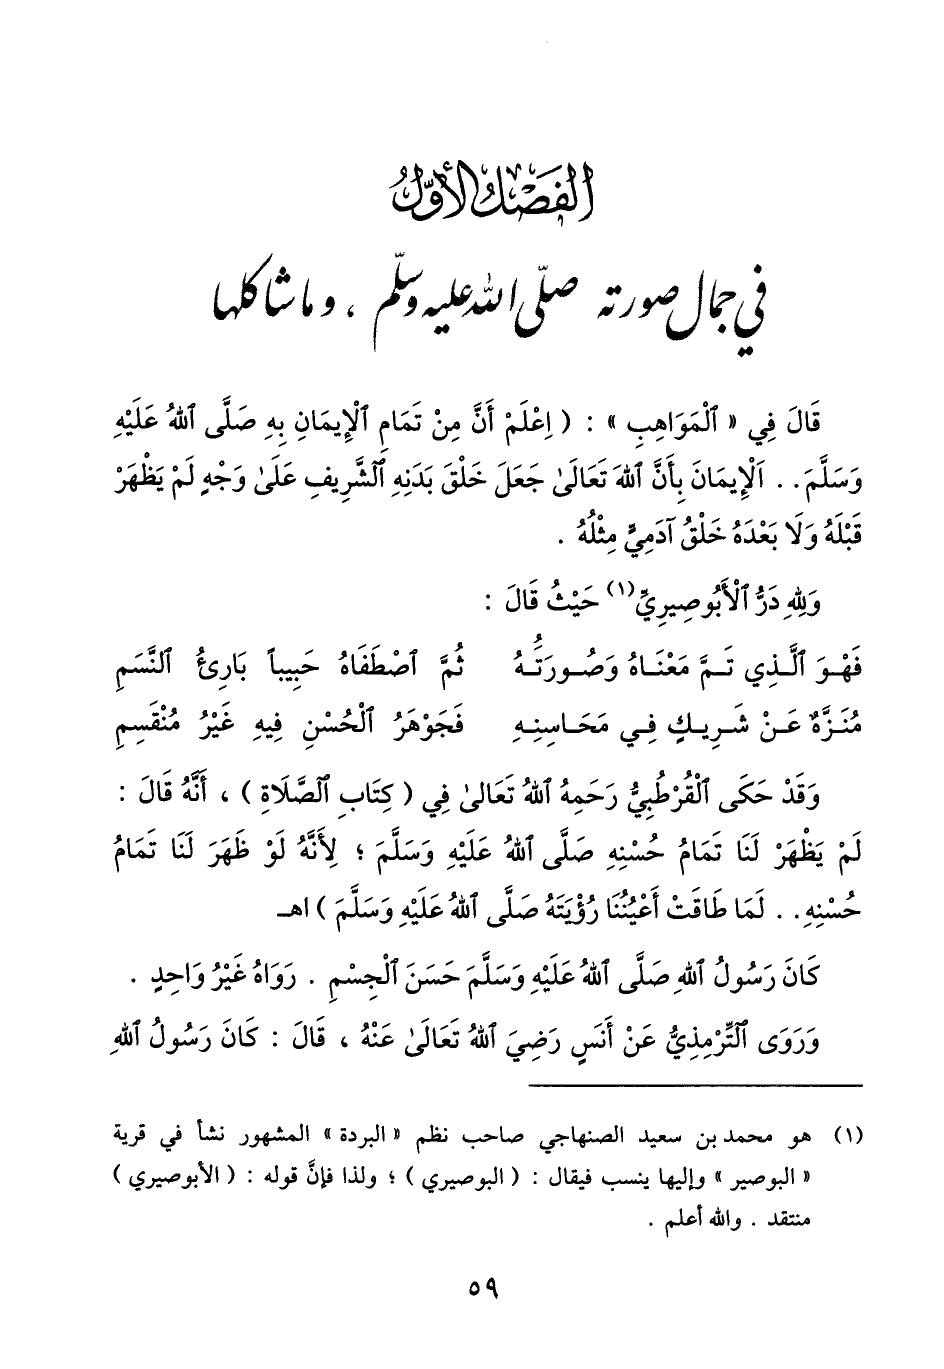 الفَصْلُ الأَوَّلُ
في جمال صورته صلّى الله عليه وسلّم ، وما شاكلها
قَالَ فِي « ٱلْمَوَاهِبِ » : ( اِعْلَمْ أَنَّ مِنْ تَمَامِ ٱلْإِيمَانِ بِهِ صَلَّى ٱللهُ عَلَيْهِ
وَسَلَّمَ . . اَلْإِيمَانَ بِأَنَّ ٱللهَ تَعَالَىٰ جَعَلَ خَلْقَ بَدَنِهِ ٱلشَّرِيفِ عَلَىٰ وَجْهٍ لَمْ يَظْهَرْ
قَبْلَهُ وَلَا بَعْدَهُ خَلْقُ آدَمِيٍّ مِثْلُهُ .
وَلِلهِ دَرُّ ٱلْأَبُوصِيرِيِّ(١) حَيْثُ قَالَ :
فَهْوَ ٱلَّذِي تَمَّ مَعْنَاهُ وَصُورَتُهُ ثُمَّ ٱصْطَفَاهُ حَبِيباً بَارِئُ ٱلنَّسَمِ
مُنَزَّهٌ عَنْ شَرِيكٍ فِي مَحَاسِنِهِ فَجَوْهَرُ ٱلْحُسْنِ فِيهِ غَيْرُ مُنْقَسِمِ
وَقَدْ حَكَى ٱلْقُرْطُبِيُّ رَحِمَهُ ٱللهُ تَعَالىٰ فِي ( كِتَابِ ٱلصَّلَاةِ ) ، أَنَّهُ قَالَ :
لَمْ يَظْهَرْ لَنَا تَمَامُ حُسْنِهِ صَلَّى ٱللهُ عَلَيْهِ وَسَلَّمَ ؛ لِأَنَّهُ لَوْ ظَهَرَ لَنَا تَمَامُ
حُسْنِهِ . . لَمَا طَاقَتْ أَعْيُنُنَا رُؤْيَتَهُ صَلَّى ٱللهُ عَلَيْهِ وَسَلَّمَ ) اهـ
كَانَ رَسُولُ ٱللهِ صَلَّى ٱللهُ عَلَيْهِ وَسَلَّمَ حَسَنَ ٱلْجِسْمِ . رَوَاهُ غَيْرُ وَاحِدٍ .
وَرَوَى ٱلتِّرْمِذِيُّ عَنْ أَنَسٍ رَضِيَ ٱللهُ تَعَالَىٰ عَنْهُ ، قَالَ : كَانَ رَسُولُ ٱللهِ
(١) هو محمد بن سعيد الصنهاجي صاحب نظم « البردة » المشهور نشأ في قرية
« البوصير » وإليها ينسب فيقال : ( البوصيري ) ؛ ولذا فإنَّ قوله : ( الأبوصيري )
منتقد . والله أعلم .
٥٩